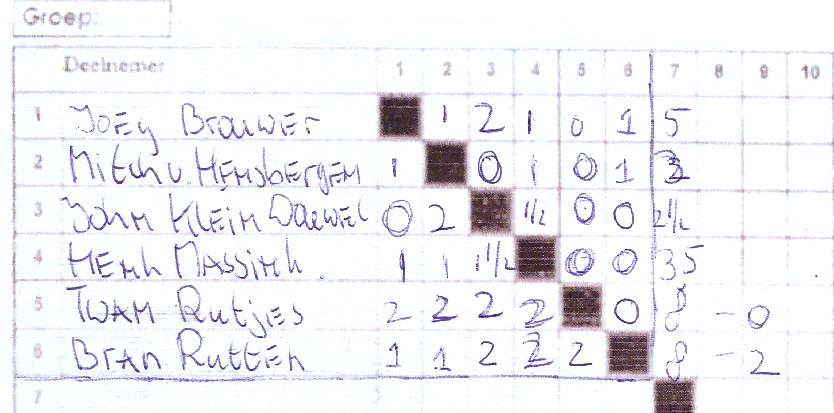 Groep:
Deelnemer 1 2 3 4 5 6 7 8 9 10
1 Joey Brouwer 1 2 1 0 1 5
2 Mitch v. Hensbergen 1 0 1 0 1 3
3 John Klein 0 2 1/2 0 0 2 1/2
4 Henk Massink. 1 1 1 1/2 0 0 35
5 Twan Rutjes 2 2 2 2 0 8 - 0
6 Bran Rutten 1 1 2 2 2 8 - 2
7